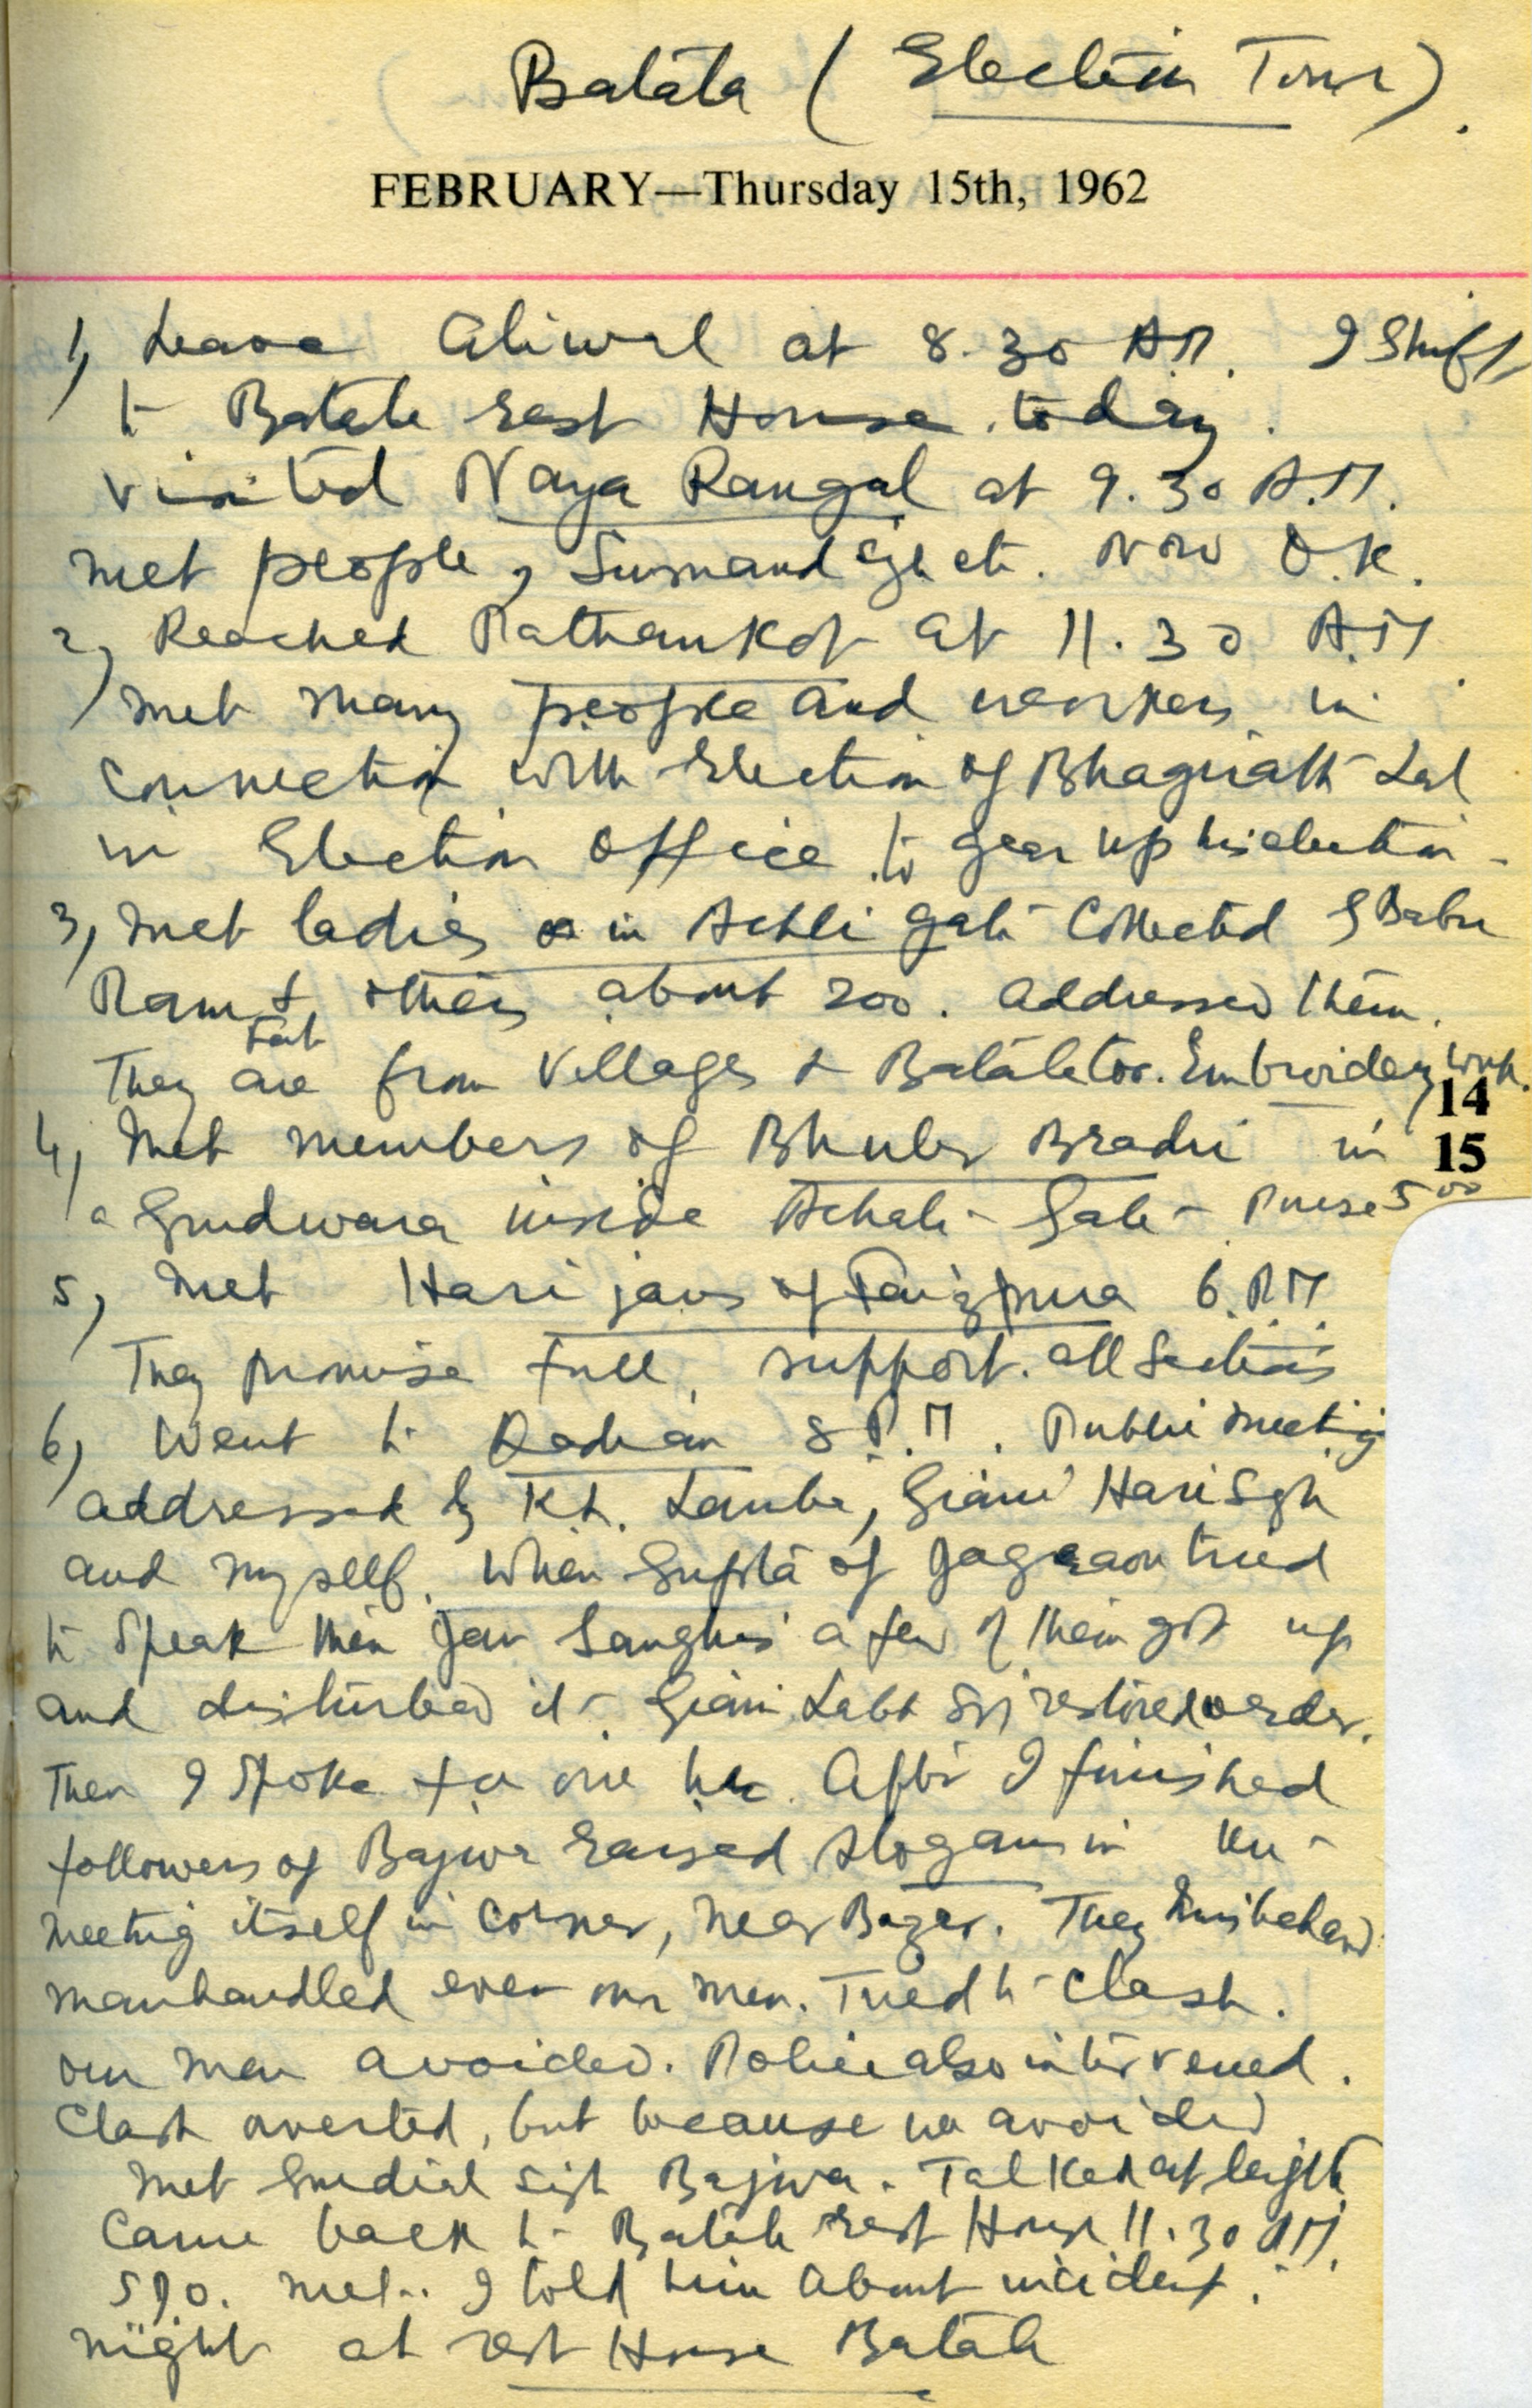 Batala (Election Tour).
FEBRUARY—Thursday 15th, 1962
1, Leave Aliwal at 8.30 A.M. I Shift
to Batala rest House today.
visited Naya Rangal at 9.30 A.M.
met people, etc. Now O.K.
2, Reached Pathankot at 11.30 A.M.
met many people and workers in
connection with Election of Bhagirath Lal
in Election office to gear up his election
3, Met ladies in Achli gate Collected S Babu
Ram & others about 200. addressed them.
They are from Villages & Batala too. Embroidery work.
14
4, Met members of Bradri in
15
a Gurdwara inside Achali Gate - Purse 500
5, Met Harijans of Faizpura 6.P.M.
They promise full support. all Sections
6, Went to Qadian 8 P.M. Public meeting
addressed by Kt. Lamba, Giani Hari Sgh
and myself. When Gupta of Jagraon tried
to Speak then Jan Sanghis a few of them got up
and disturbed it. Giani Labh restored order.
Then I Spoke for one hr. After I finished
followers of Bajwa raised slogans in the
meeting itself in corner, near Bazar. They misbehaved
manhandled even our men. Tried to clash.
our men avoided. Police also intervened.
Clash averted, but because we avoided
Met Gurdial Singh Bajwa. Talked at length
Came back to Batala rest House 11.30
met. I told him about incident.
night at rest House Batala